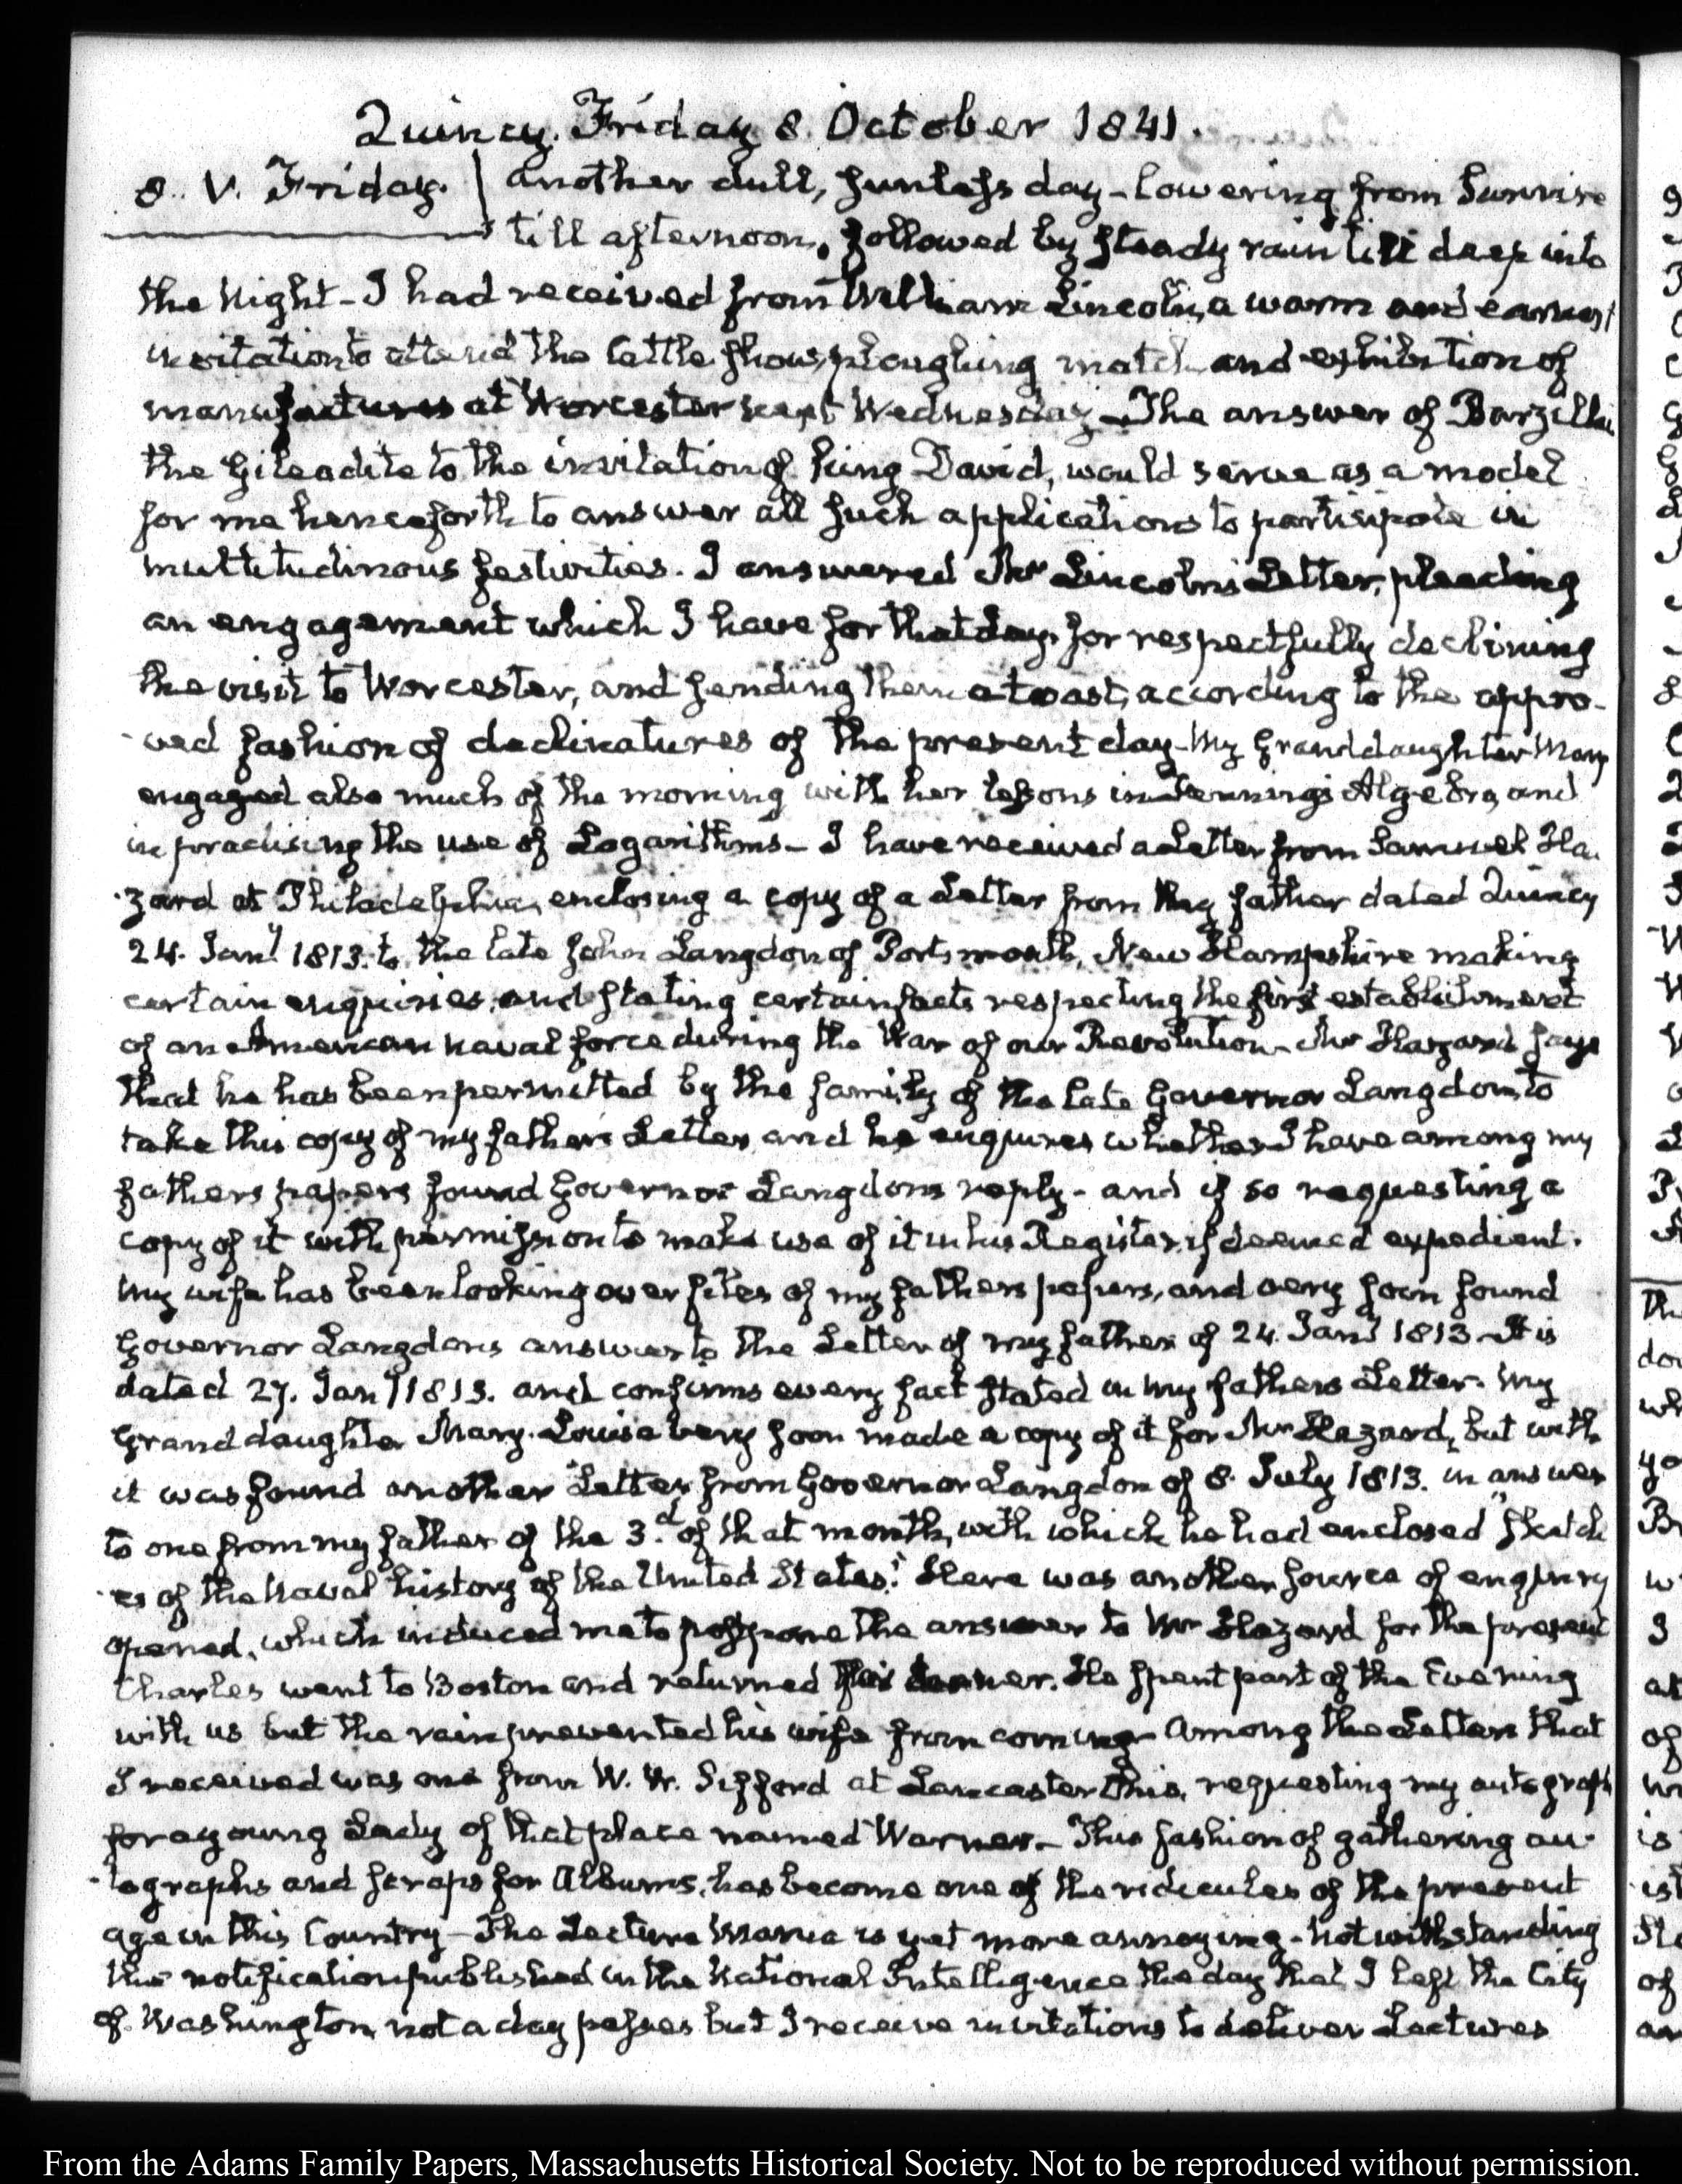 Quincy. Friday 8. October 1841.
8. V. Friday. Another dull, sunless day – lowering from Sunrise
till afternoon, followed by steady rain till deep into
the Night – I had received from William Lincoln, a warm and earnest
invitation to attend the Cattle show, ploughing match and exhibition of
manufactures at Worcester next Wednesday – The answer of Barzillai
the Gileadite to the invitation of king David, would serve as a model
for me henceforth to answer all such applications to participate in
multitudinous festivities. I answered Mr Lincoln's Letter, pleading
an engagement which I have for that day, for respectfully declining
the visit to Worcester, and sending them a toast, according to the appro-
-ved fashion of declinatures of the present day – My Granddaughter Mary
engaged also much of the morning with her lessons in Algebra, and
in practising the use of Logarithms – I have received a Letter from Samuel Ha-
-zard at Philadelphia, enclosing a copy of a Letter from my father dated Quincy
24. Jany 1813. to the late John Langdon of Portsmouth, New Hampshire making
certain enquiries, and stating certain facts respecting the first establishment
of an American naval force during the War of our Revolution – Mr Hazard says
that he has been permitted by the family of the late Governor Langdon, to
take this copy of my father's Letter, and he enquires whether I have among my
fathers papers found Governor Langdons reply – and if so requesting a
copy of it with permission to make use of it in his Register, if deemed expedient.
My wife has been looking over files of my fathers papers, and very soon found
Governor Langdons answer to the Letter of my father of 24. Jany 1813. It is
dated 27. Jany 1813. and confirms every fact stated in my fathers Letter. My
Granddaughter Mary-Louisa very soon made a copy of it for Mr Hazard, but with
it was found another Letter from Governor Langdon of 8. July 1813. in answer
to one from my father of the 3.d of that month, with which he had enclosed "Sketch
-es of the Naval history of the United States." Here was another source of enquiry
opened, which induced me to postpone the answer to Mr Hazard for the present
Charles went to Boston and returned to dinner. He spent part of the Evening
with us but the rain prevented his wife from coming – Among the Letters that
I received was one from W. W. at Lancaster Ohio, requesting my autograph
for a young Lady of that place named Warner – This fashion of gathering au-
-tographs and scraps for Albums, has become one of the ridicules of the present
age in this Country – The Lecture Mania is yet more annoying – Notwithstanding
the notification published in the National Intelligencer the day that I left the City
of Washington, not a day passes but I receive invitations to deliver Lectures
From the Adams Family Papers, Massachusetts Historical Society. Not to be reproduced without permission.